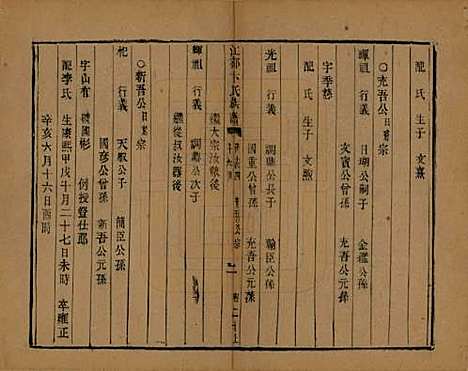 配 氏 生子 文熹
○充吾公日葵宗
暉祖 行義 日瑚公嗣子 金鑑公孫
文賓公曾孫 充吾公元孫
字季慈
配 氏 生子 文煦
光祖 行義 調鼎公長子 輸臣公孫
國重公曾孫 充吾公元孫
江都卞氏族譜
暉祖 行義 調鼎公次子
繼大宗汝霖後
繼從叔汝霖後
○新吾公日葵宗
祀 行義 天馭公子 簡臣公孫
國彦公曾孫 新吾公元孫
字山有 諱國彬 例授登仕郎
配李氏 生康熙甲戌十月二十七日未時 卒雍正
辛亥六月十六日酉時